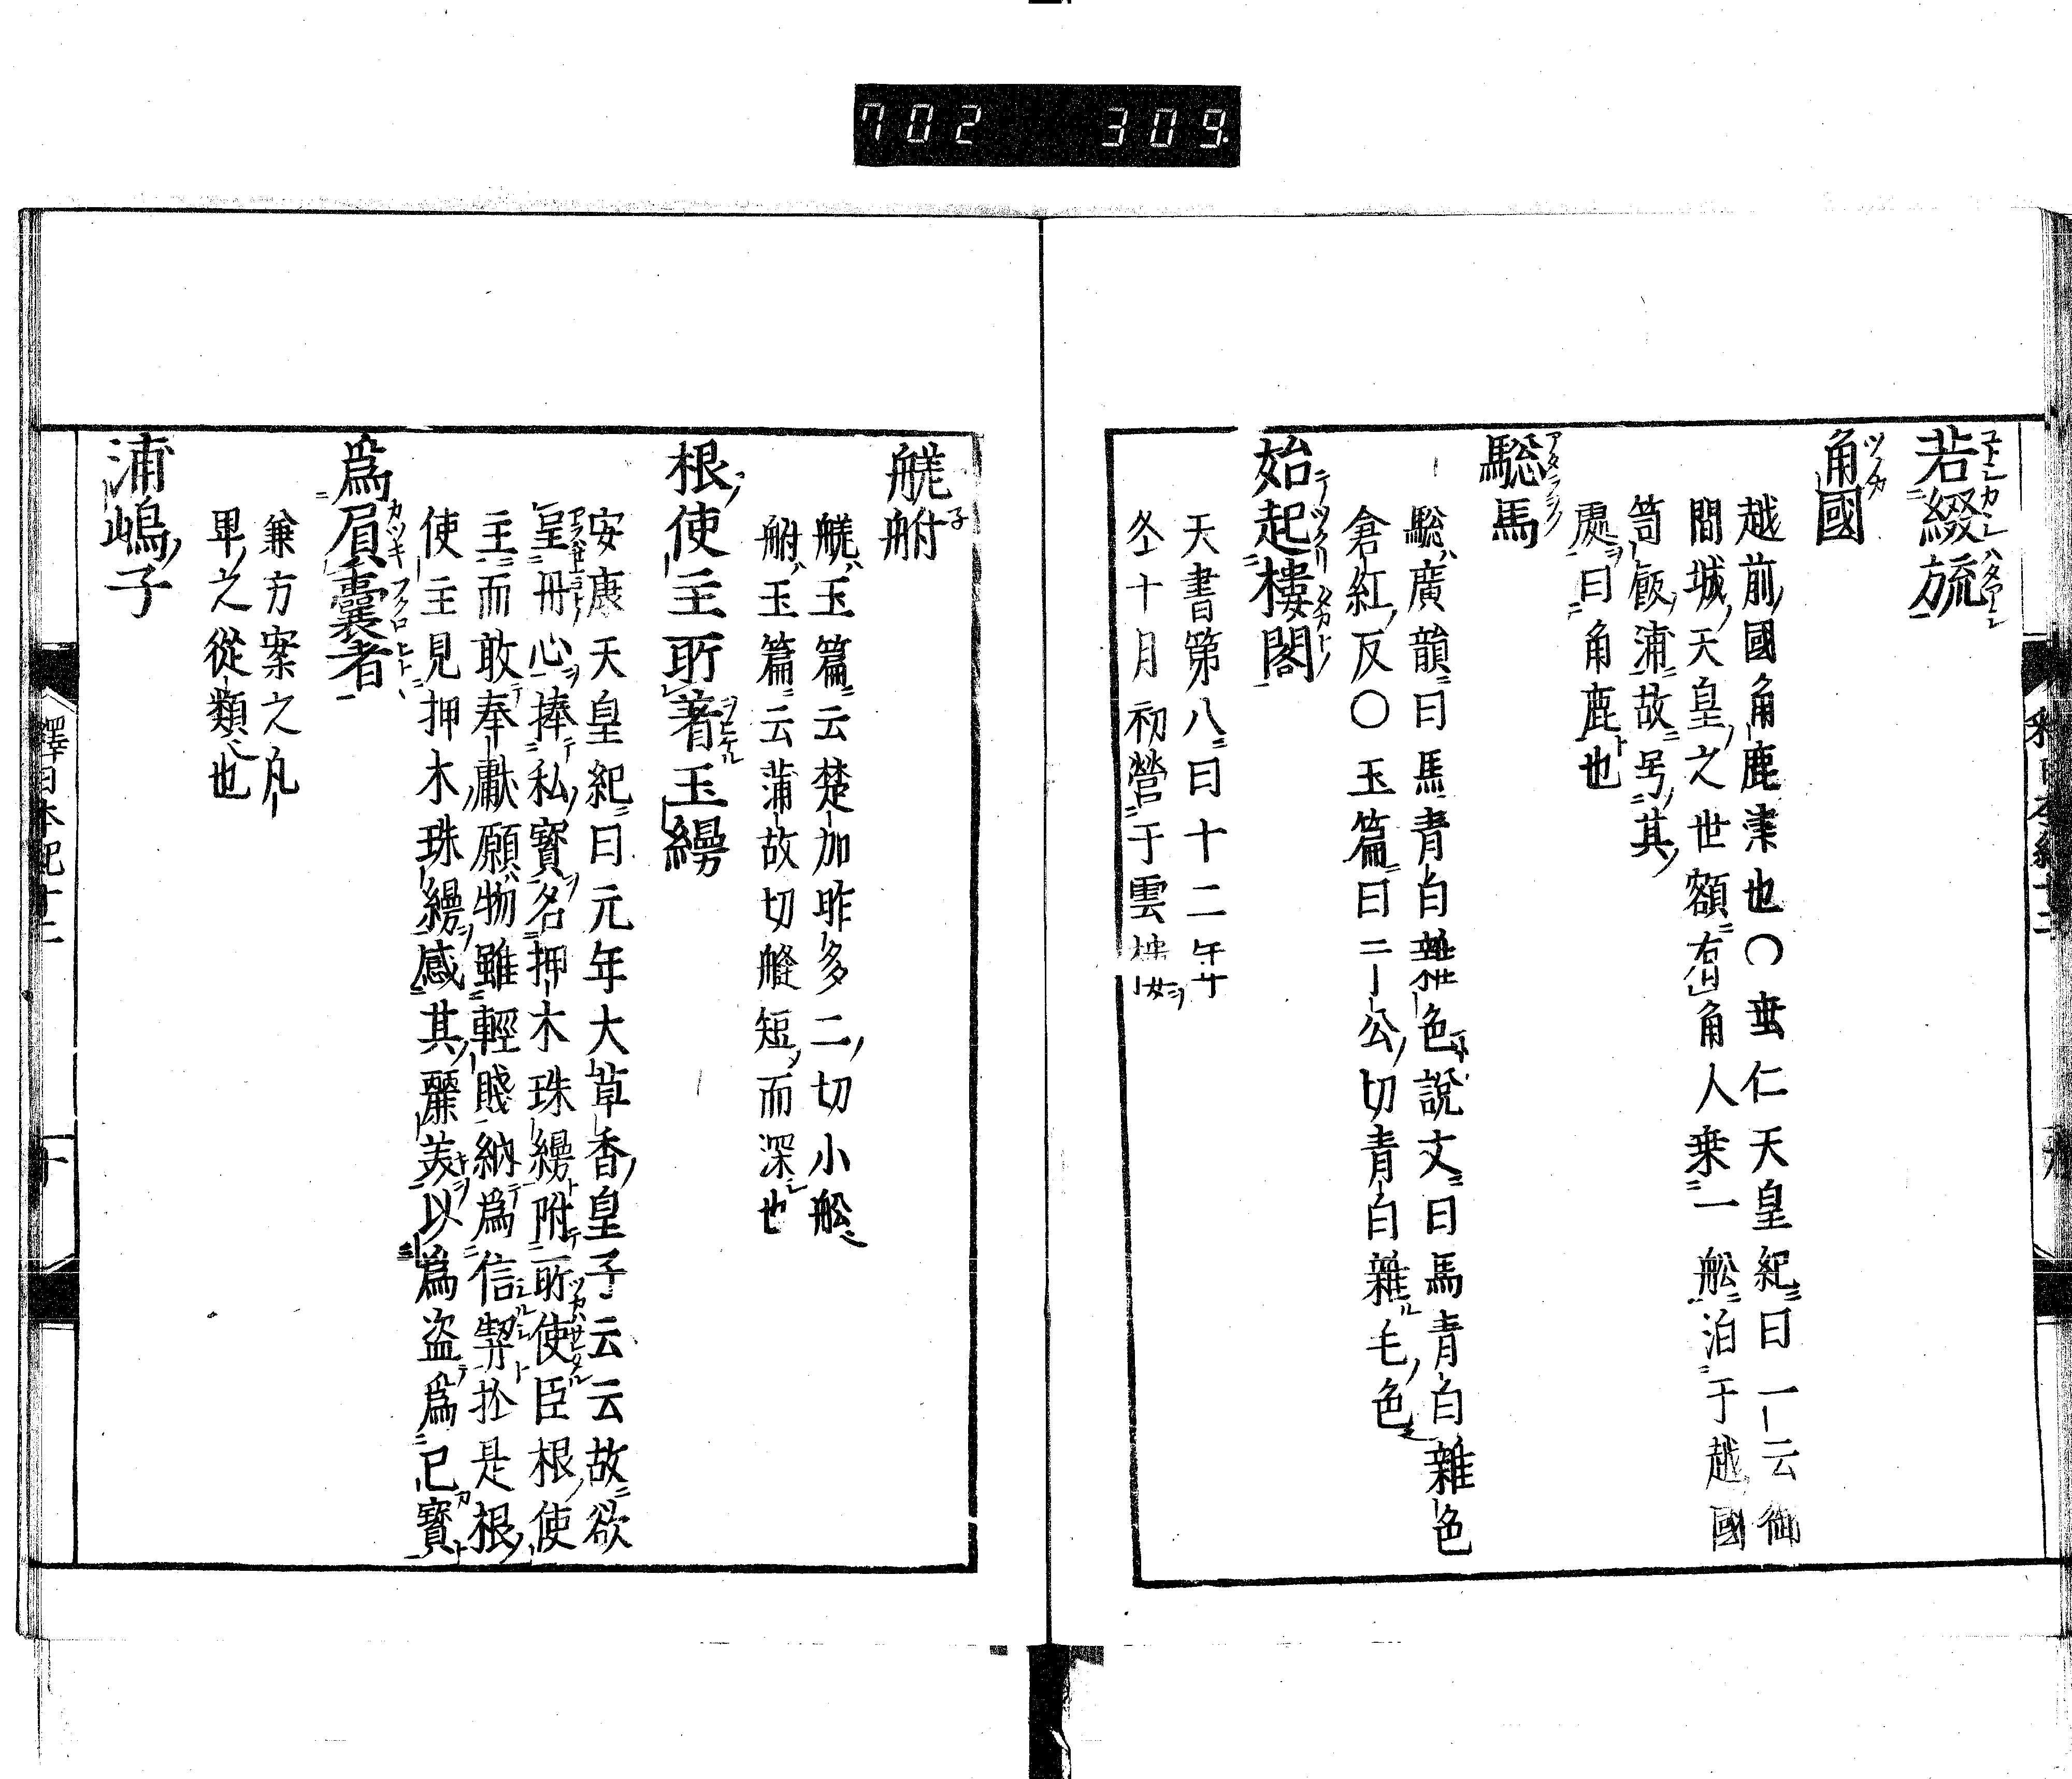 702 309
若綴旒
角國
越前國角鹿津也〇垂仁天皇紀曰一云御
間城天皇之世額有角人乗一舩泊于越國
笥飯浦故号其
處曰角鹿也
驄馬
驄廣韻曰馬青白雜色説文曰馬青白雜色
倉紅反〇玉篇曰二公切青白雜毛色
始起樓閣
天書第八曰十二年
冬十月初營于雲
艖艀
艖玉篇云楚加昨多二切小舩
玉篇云蒲故切艇短而深也
根使主所著玉縵
安康天皇紀曰元年大草香皇子云云故欲
呈丹心捧私寳名押木珠縵附所使臣根使
主而敢奉獻願物雖輕賤納爲信契於是根
使主見押木珠縵感其麗美以爲盗爲己寳
爲負嚢者
兼方案之凡
卑之從類也
浦嶋子
釋日本紀十二